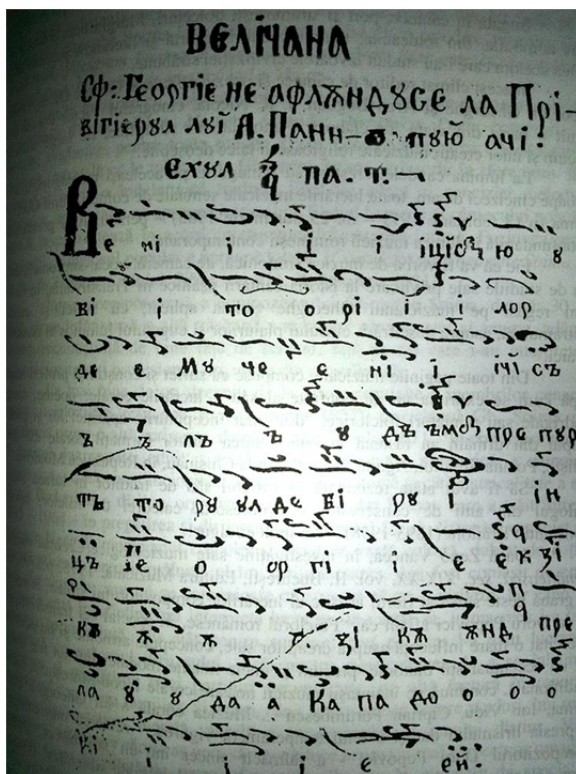 ВЕЛІЧАНА
Сф: Георгіе не афлѫндꙋсе ла Прі-
вігіерул луй А. Панн– пую ачі.
ехул па. т:–
Ве ні і і ю ꙋ
ві і то о рі і і лор
де е мꙋ че е ні і ічі съ
ъ ъ лъ ъ ꙋ дъ пре пур
тъ то рꙋ ул де бі рꙋ і ін
цъ Ге о ор гі і е е к зі
кѫ ѫ ѫ ѫ зі кѫ ѫнд пре
ла ꙋ ꙋ да а Ка па до о о о
кі і і і е ей!